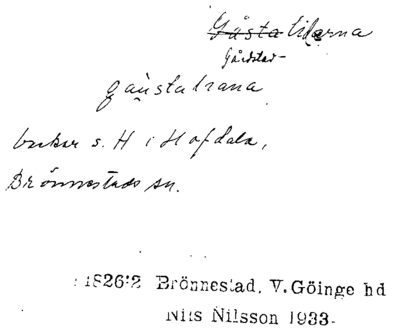 Gåstalidarna
Gårdstad-
gaustalrana
backar s. H i Hofdala,
Brönnestads sn.
1826:2 Brönnestad. V. Göinge hd
Nils Nilsson 1933.